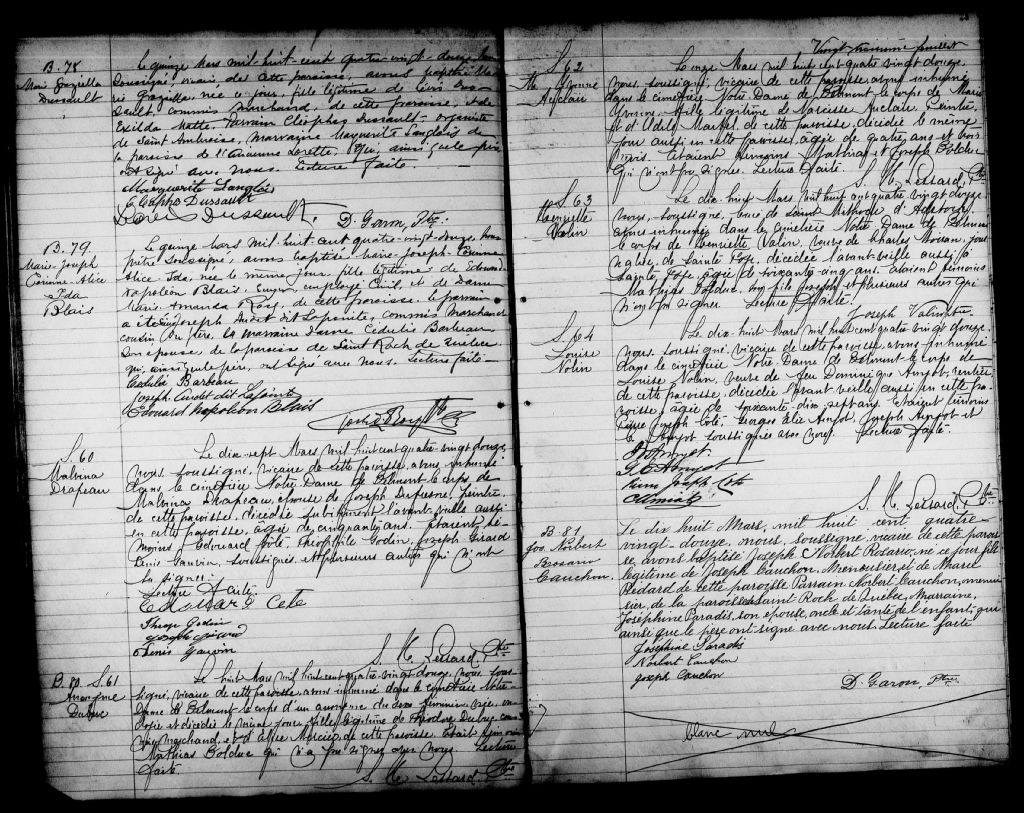 B. 78
Marie Graziella
Dussault
Le quinze Mars mil-huit-cent quatre-vingt-douze, nous
soussigné, vicaire de cette paroisse, avons baptisé Ma-
rie Graziella, née ce jour, fille légitime de Cléo Dus-
sault, commis marchand, de cette paroisse, et de
Exilda Matte. Parrain Cléophas Dussault, organiste
de Saint Ambroise, marraine Marguerite Langlois de
la paroisse de l'Ancienne Lorette, qui, ainsi que le père
ont signé avec nous. Lecture faite
Marguerite Langlois
Cléophas Dussault
Dussault. D. Garon Ptre.
B. 79
Marie-Joseph
Corinne-Alice
Ida
Blais
Le quinze Mars mil-huit-cent quatre-vingt-douze, nous
prêtre soussigné, avons baptisé Marie-Joseph-Corinne-
Alice-Ida, née le même jour, fille légitime de Edouard
Napoléon Blais, employé Civil, et de Dame
Marie-Amanda Roy, de cette paroisse. Le parrain
a été Joseph Audet dit Lapointe, commis marchand
cousin du père, la marraine Dame Cédulie Barbeau
son épouse, de la paroisse de Saint Roch de Québec
qui, ainsi que le père, ont signé avec nous. Lecture faite.
Cédulie Barbeau
Joseph Audet dit Lapointe
Edouard Napoléon Blais
S. 60
Malvina
Drapeau
Le dix-sept Mars mil huit cent quatre-vingt douze,
nous, soussigné, vicaire de cette paroisse, avons inhumé
dans le cimetière Notre-Dame de Belmont le corps de
Malvina Drapeau, épouse de Joseph Dufresne, peintre,
de cette paroisse, décédée subitement l'avant-veille aussi
en cette paroisse, âgée de cinquante ans. Etaient té-
moins Edouard Côté, Théophile Godin, Joseph Girard
Denis Gauvin, soussignés, et plusieurs autres qui n'ont
su signer.
Lecture faite.
Edouard Cote
Theop Godin
Joseph Girard
Denis Gauvin
S. M. Lessard, Ptre
B. 80 S. 61
Anonyme
Dubuc
Le huit Mars mil huit cent quatre-vingt-douze nous sous-
signé, vicaire de cette paroisse, avons inhumé dans le cimetière Notre-
Dame de Belmont le corps d'un anonyme du sexe féminin née, on-
doyée et décédée le même jour, fille légitime de Théodore Dubuc com-
mis marchand, et de Alice Mercier de cette paroisse. Etait témoin
Mathias Bolduc qui n'a pu signer avec nous. Lecture
faite.
S. M. Lessard, Ptre
Vingt-troisième feuillet
S. 62
M. Yvonne
Auclair
Le onze Mars mil huit cent quatre vingt douze,
nous, soussigné, vicaire de cette paroisse, avons inhumé
dans le cimetière Notre-Dame de Belmont le corps de Marie
Yvonne, fille légitime de Narcisse Auclair, Peintre,
et d'Odélie Martel, de cette paroisse, décédée le même
jour aussi en cette paroisse, âgée de quatre ans et trois
mois. Etaient témoins Mathias et Joseph Bolduc
qui n'ont pu signer. Lecture faite.
S. M. Lessard, Ptre
S. 63
Henriette
Valin
Le dix huit Mars mil huit cent quatre-vingt-douze
nous, soussigné, curé de Saint Méthode d'Adstock,
avons inhumé dans le cimetière Notre Dame de Belmont
le corps de Henriette Valin, veuve de Charles
de Sainte Foye, décédée l'avant-veille aussi à
Sainte Foye, âgée de soixante-cinq ans. Etaient témoins
Mathias Bolduc, son fils Joseph et plusieurs autres qui
n'ont pu signer. Lecture faite.
Joseph
S. 64
Louise
Nolin
Le dix-huit Mars mil huit cent quatre vingt douze
nous, soussigné, vicaire de cette paroisse, avons inhumé
dans le cimetière Notre-Dame de Belmont le corps de
Louise Nolin, veuve de feu Dominique Amyot, rentière
de cette paroisse, décédée l'avant veille aussi en cette pa-
roisse, âgée de soixante-dix-sept ans. Etaient témoins
Pierre Joseph Côté, Georges Elie Amyot, Joseph Amyot et
Amyot soussignés avec nous. Lecture faite.
J. Amyot
G. E. Amyot
Pierre Joseph Cote
S. M. Lessard, Ptre
B. 81
Jos. Norbert
Rosario
Cauchon.
Le dix huit Mars, mil huit cent quatre-
vingt-douze, nous, soussigné, vicaire de cette parois-
se, avons baptisé Joseph Norbert Rosario, né ce jour fils
légitime de Joseph Cauchon, Menuisier, et de Marie
Bédard de cette paroisse. Parrain Norbert Cauchon, menui-
sier, de la paroisse Saint Roch de Québec, Marraine,
Joséphine Paradis, son épouse, oncle et tante de l'enfant, qui
ainsi que le père ont signé avec nous. Lecture faite
Josephine Paradis
Norbert Cauchon
Joseph Cauchon
D. Garon, Ptre
blanc nul